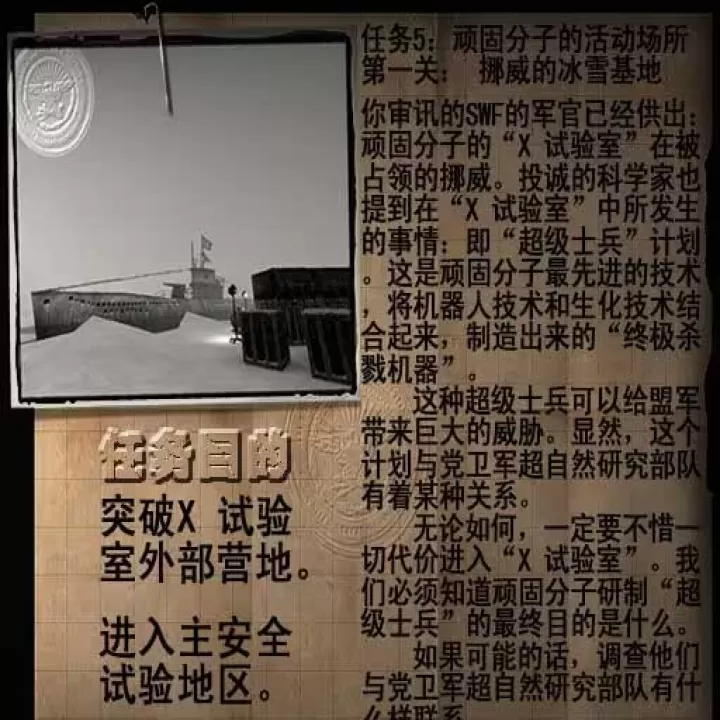 任务5：顽固分子的活动场所
第一关： 挪威的冰雪基地
你审讯的SWF的军官已经供出：
顽固分子的“X 试验室”在被
占领的挪威。投诚的科学家也
提到在“X 试验室”中所发生
的事情：即“超级士兵”计划
。这是顽固分子最先进的技术
，将机器人技术和生化技术结
合起来，制造出来的“终极杀
戮机器”。
这种超级士兵可以给盟军
带来巨大的威胁。显然，这个
计划与党卫军超自然研究部队
有着某种关系。
无论如何，一定要不惜一
切代价进入“X 试验室”。我
们必须知道顽固分子研制“超
级士兵”的最终目的是什么。
如果可能的话，调查他们
与党卫军超自然研究部队有什
么样联系
任务目的
突破X 试验
室外部营地。
进入主安全
试验地区。